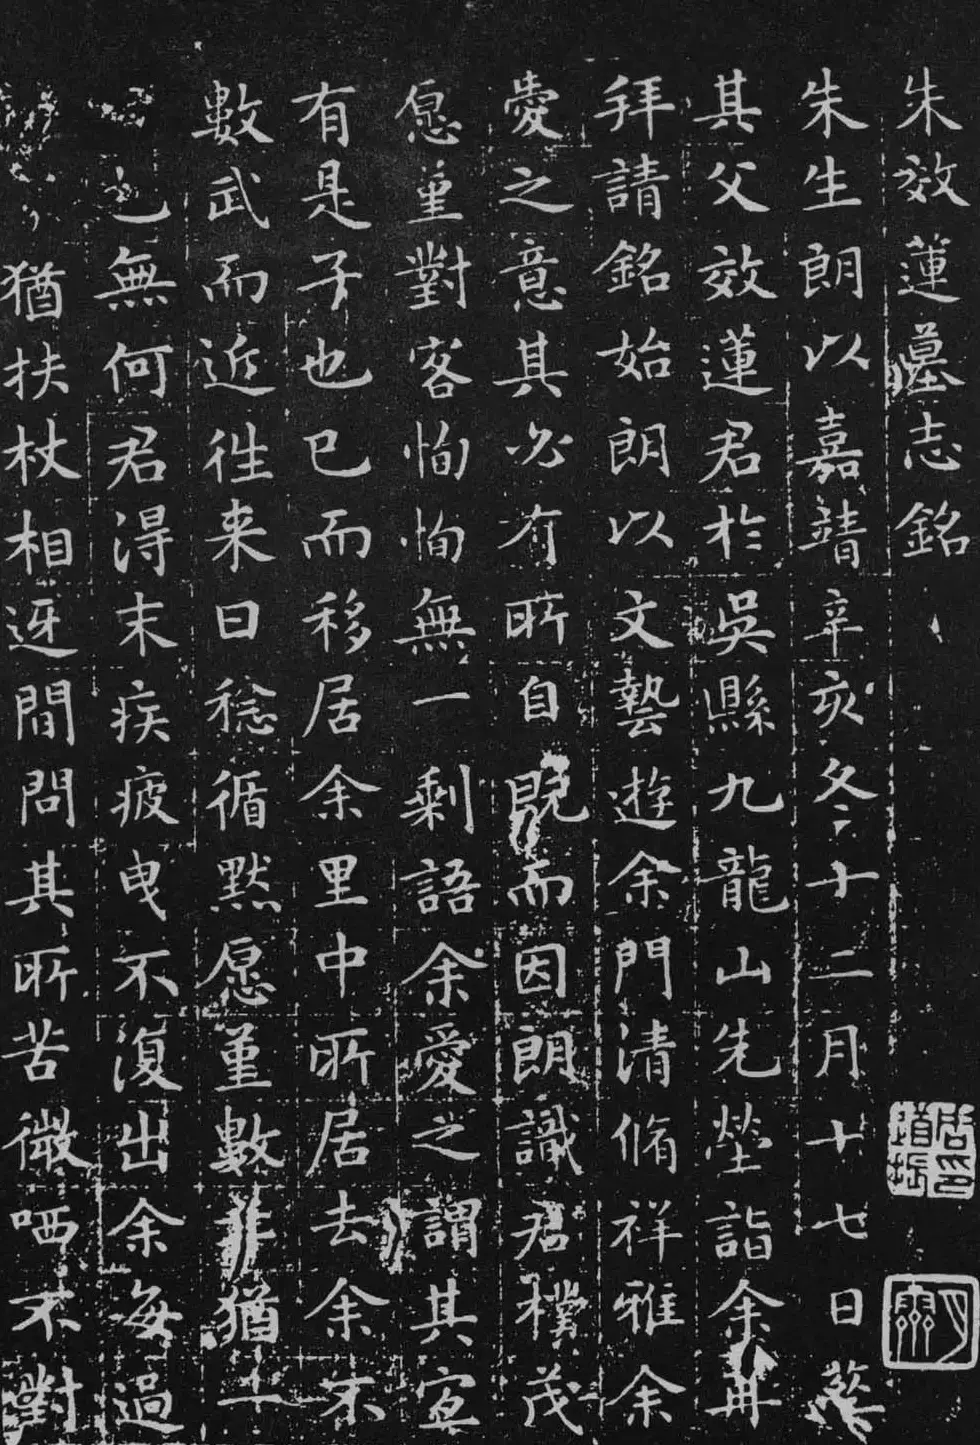 朱效蓮墓志銘
朱生朗以嘉靖辛亥冬十二月十七日葬
其父效蓮君於吳縣九龍山先塋詣余再
拜請銘始朗以文藝遊余門清脩祥雅余
愛之意其必有所自既而因朗識君樸茂
愿重對客恂恂無一剩語余愛之謂其宜
有是子也已而移居余里中所居去余不
數武而近往来日稔循默愿重數年猶一
日也無何君得末疾疲曳不復出余每過
猶扶杖相迓間問其所苦微哂不對